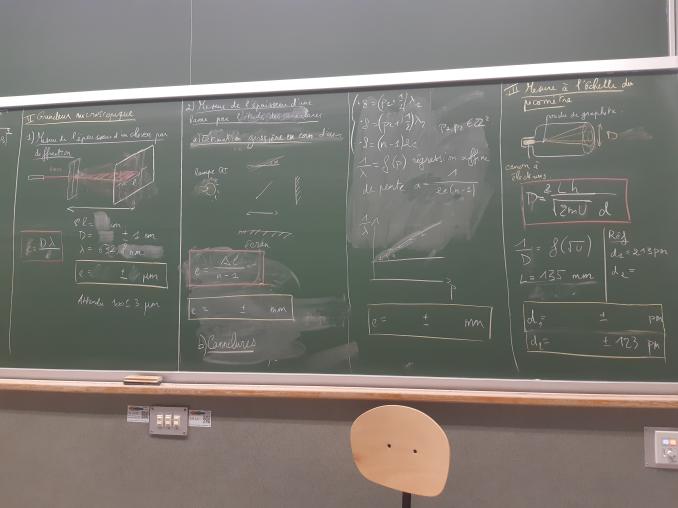 II Grandeur microscopique
1) Mesure de l'épaisseur d'un cheveu par
diffraction
D = ± 1 cm
λ = 632, nm
e = Dλ/l
e = ± μm
Attendu 100 ± 3 μm
2) Mesure de l'épaisseur d'une
lame par l'étude des cannelures
a) Formation grossière en coin d'air
Lampe QI
Écran
e = Δl/n-1
e = ± mm
b) Cannelures
·δ = (p₂+1/2)λ₂
·δ = (p₂+1/2)λ₂
p₁,p₂ ∈ Z²
·δ = (n-1)2e
1/λ = f(p) régression affine
de pente a = 1/2e(n-1)
1/λ
p
e = ± mm
III Mesure à l'échelle du
picomètre
poudre de graphite
D
canon à
électrons
D = 2Lh/√2mU d
1/D = f(√U)
L = 135 mm
Réf
d₁ = 213 pm
d₂ =
d₁ = ± pm
d₁ = ± 123 pm